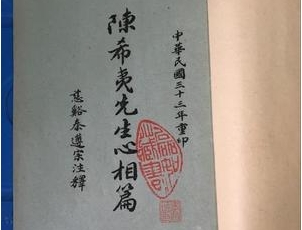 中華民國三十三年重印
陳希夷先生心相篇
慈谿秦遵宗注釋